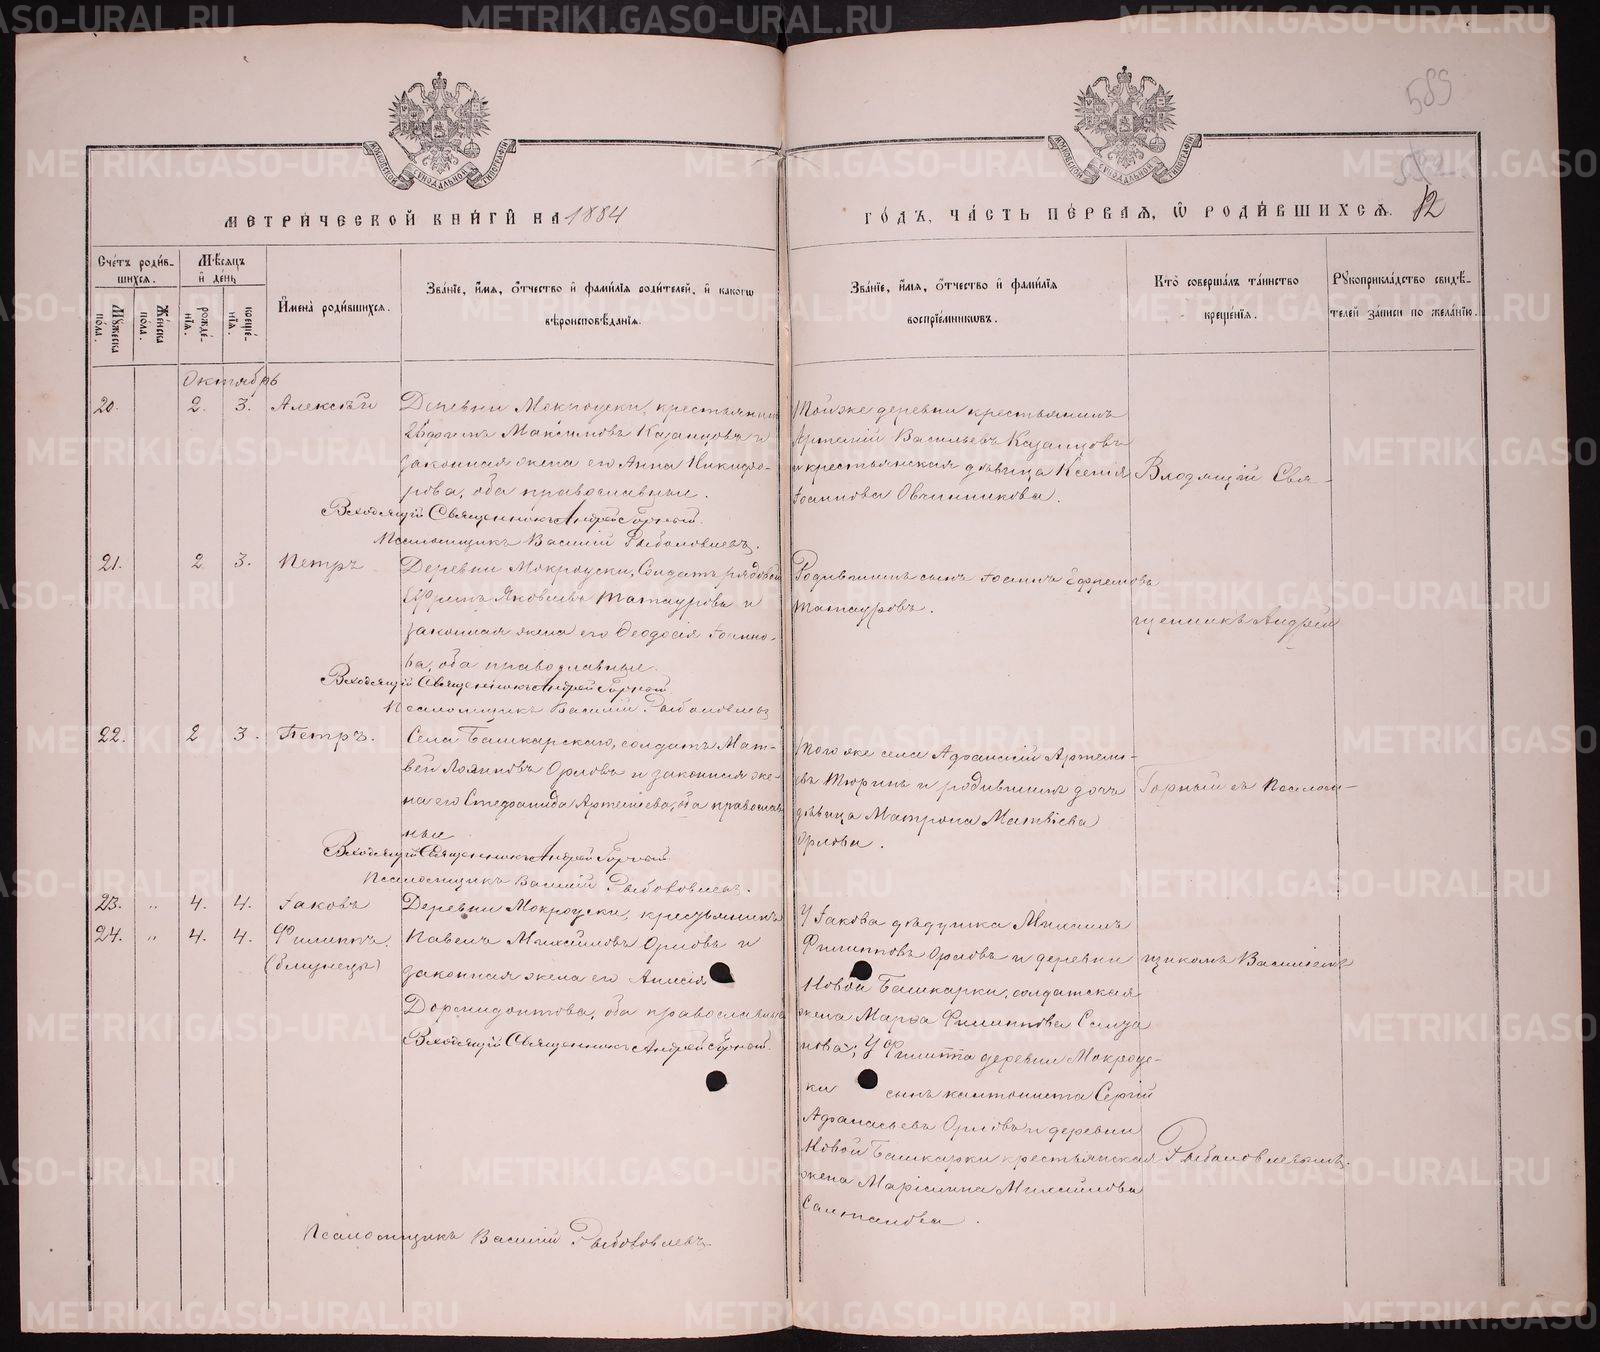 589
МЕТРИ́ЧЕСКОЙ КНИ́ГИ НА 1884
ГО́ДЪ, ЧА́СТЬ ПЕ́РВАЯ, Ѿ РОДИ́ВШИХСЯ. 12
Сче́тъ роди́в-
шихся.
Мꙋ́жеска по́ла.
Же́нска по́ла.
Мѣ́сяцъ и де́нь
рожде́-нїя.
креще́-нїя.
Имена̀ роди́вшихся.
Зва́нїе, и́мя, о́тчество и фами́лїя роди́телей, и како́гѡ
вѣроисповѣ́данїя.
Зва́нїе, и́мя, о́тчество и фами́лїя
воспрїе́мникѡвъ.
Кто̀ соверша́лъ та́инство
креще́нїя.
Рꙋкоприкла́дство свидѣ́-
телей за́писи по жела́нїю.
Октябрь
20. 2. 3. Алексѣй
Деревни Мокроуски, крестьянинъ
Евфимъ Максимовъ Казанцовъ и
законная жена его Анна Никифо-
рова, оба православные.
Входящій Священникъ Андрей Горный.
Псаломщикъ Василій Рыболовлевъ.
Той же деревни крестьянинъ
Артемій Васильевъ Казанцовъ
и крестьянская дѣвица Ксенія
Іоаннова Овчинникова.
Входящій Свя-
21. 2 3. Петръ
Деревни Мокроуски, Солдатъ рядовой
Ефимъ Яковлевъ Татауровъ и
законная жена его Ѳеодосія Іоанно-
ва, оба православные.
Входящій Священникъ Андрей Горный
Псаломщикъ Василій Рыболовлевъ
Родившихъ сынъ Іоаннъ Ефремовъ
Татауровъ.
щенникъ Андрей
22. 2 3. Петръ.
Села Башкарскаго, солдатъ Мат-
вѣй Логиновъ Орловъ и законная же-
на его Стефанида Артемiева, оба православ-
ные
Входящій Священникъ Андрей Горный
Псаломщикъ Василій Рыболовлевъ.
Того же села Афанасій Артемь-
евъ Тюринъ и родившихъ дочь
дѣвица Матрона Матвѣева
Орлова.
Горный съ Псалом-
23. " 4. 4. Іаковъ
24. " 4. 4. Филиппъ.
(близнецы)
Деревни Мокроуски, крестьянинъ
Павелъ Михайловъ Орловъ и
законная жена его Анисія
Дормидонтова, оба православные
Входящій Священникъ Андрей Горный.
Псаломщикъ Василій Рыболовлевъ
У Іакова дѣдушка Михаилъ
Филипповъ Орловъ и деревни
Новой Башкарки, солдатская
жена Марѳа Филиппова
нова; У Филиппа деревни Мокроус-
ки сынъ кантониста Сергій
Афанасьевъ Орловъ и деревни
Новой Башкарки крестьянская
жена Маріанна Михайлова
щикомъ Василіемъ
Рыболовлевымъ.
METRIKI.GASO-URAL.RU